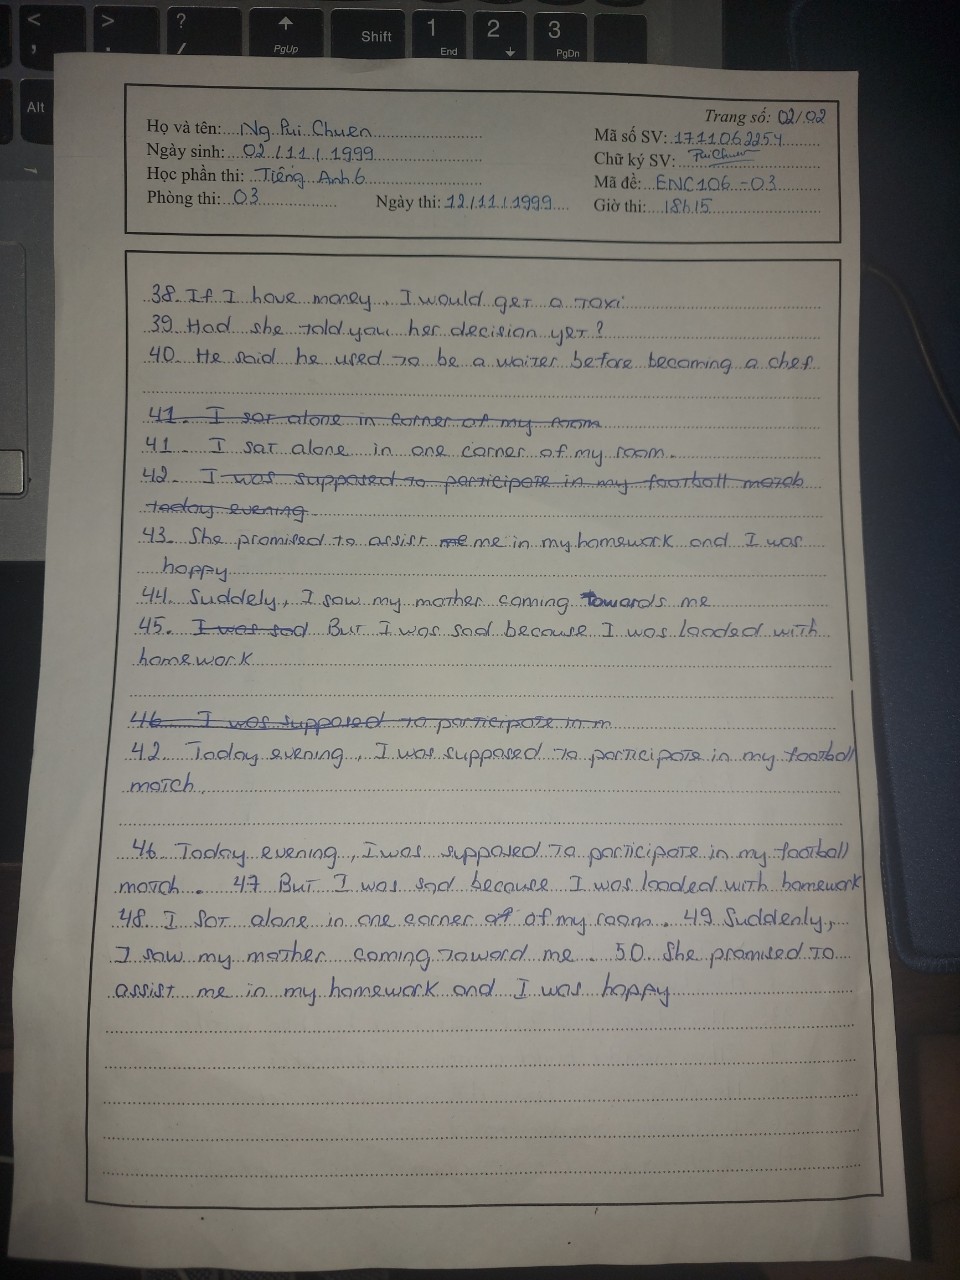 <
,
>
.
?
/
PgUp
Shift
1
End
2
3
PgDn
Alt
Trang số: 02/02
Họ và tên: Ng. Pui Chuen
Mã số SV: 1711062254
Ngày sinh: 02/11/1999
Chữ ký SV: PuiChuen
Học phần thi: Tiếng Anh 6
Mã đề: ENC106-03
Phòng thi: 03 Ngày thi: 12/11/1999 Giờ thi: 18h15
38. If I have money, I would get a taxi
39. Had she told you her decision yet?
40. He said he used to be a waiter before becoming a chef.
41. I sat alone in corner of my room
41. I sat alone in one corner of my room.
42. I was supposed to participate in my football match
today evening.
43. She promised to assist me me in my homework and I was
happy
44. Suddely, I saw my mother coming towards me
45. I was sad But I was sad because I was loaded with
homework
46. I was supposed to participate in m
42. Today evening, I was supposed to participate in my football
match.
46. Today evening, I was supposed to participate in my football
match. 47. But I was sad because I was loaded with homework
48. I sat alone in one corner of of my room. 49. Suddenly,
I saw my mother coming toward me. 50. She promised to
assist me in my homework and I was happy